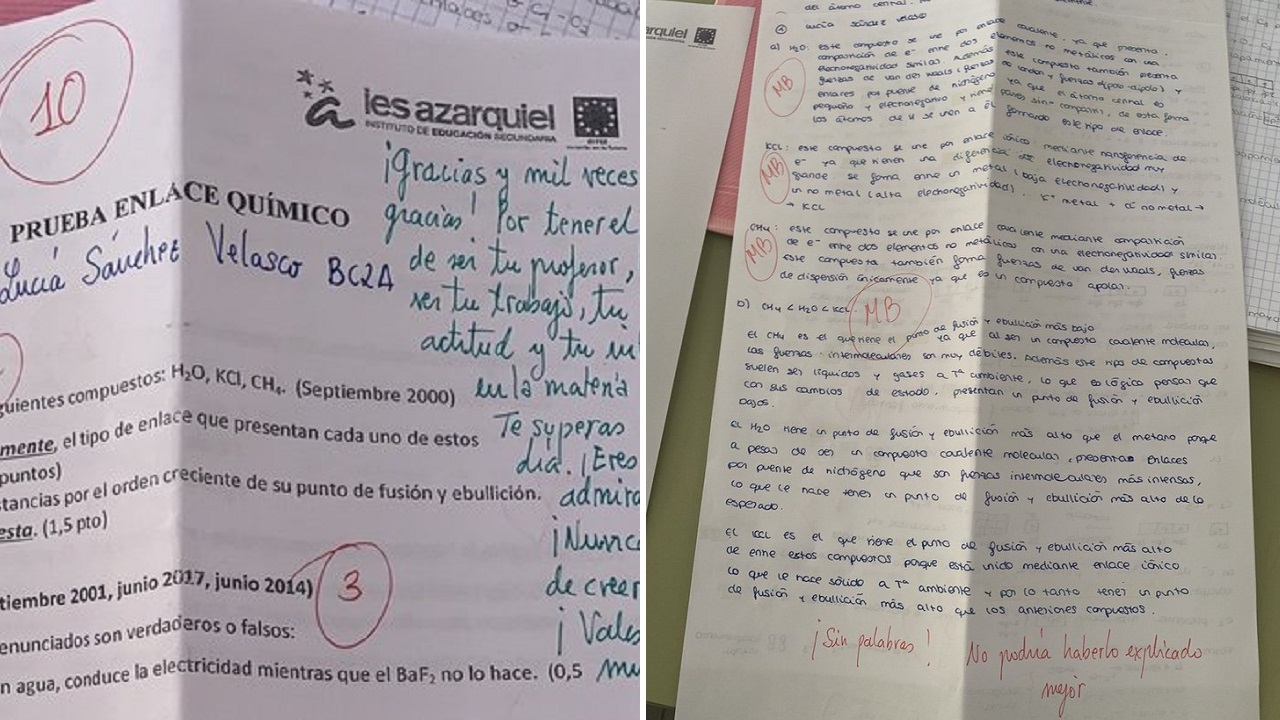 10
ies azarquiel
INSTITUTO DE EDUCACIÓN SECUNDARIA
PRUEBA ENLACE QUÍMICO
Lucía Sánchez Velasco BC2A
¡Gracias y mil veces
gracias! Por tener el
de ser tu profesor,
ser tu trabajo, tu
actitud y tu in
en la materia
Te superas
día. ¡Eres
admira
¡Nunca
de creer
¡Vales
mu
guientes compuestos: H₂O, KCl, CH₄. (Septiembre 2000)
mente, el tipo de enlace que presentan cada uno de estos
puntos)
stancias por el orden creciente de su punto de fusión y ebullición.
esta. (1,5 pto)
tiembre 2001, junio 2017, junio 2014)
3
enunciados son verdaderos o falsos:
n agua, conduce la electricidad mientras que el BaF₂ no lo hace. (0,5
arquiel
del átomo central.
a) H₂O: este compuesto se une por enlace covalente, ya que presenta
compartición de e⁻ entre dos elementos no metálicos con una
electronegatividad similar. Además este compuesto también presenta
fuerzas de van der waals (fuerzas
enlaces por puente de hidrógeno ya que el átomo central es
pequeño y electronegativo y tiene pares sin compartir, de esta forma
los átomos de H se unen a él formando este tipo de enlace.
MB
KCl: este compuesto se une por enlace iónico mediante transferencia de
e⁻ ya que tienen una diferencia de electronegatividad muy
grande se forma entre un metal (baja electronegatividad) y
un no metal (alta electronegatividad). K⁺ metal + Cl⁻ no metal →
→ KCl
MB
CH₄: este compuesto se une por enlace covalente mediante compartición
de e⁻ entre dos elementos no metálicos con una electronegatividad similar.
este compuesto también forma fuerzas de van der waals, fuerzas
de dispersión únicamente ya que es un compuesto apolar.
MB
b) CH₄ < H₂O < KCl
MB
El CH₄ es el que tiene el punto de fusión y ebullición más bajo
ya que al ser un compuesto covalente molecular,
las fuerzas intermoleculares son muy débiles. Además este tipo de compuestos
suelen ser líquidos y gases a Tª ambiente, lo que es lógico pensar que
con sus cambios de estado, presentan un punto de fusión y ebullición
bajos.
El H₂O tiene un punto de fusión y ebullición más alto que el metano porque
a pesar de ser un compuesto covalente molecular, presentan enlaces
por puente de hidrógeno que son fuerzas intermoleculares más intensas,
lo que le hace tener un punto de fusión y ebullición más alto de lo
esperado.
El KCl es el que tiene el punto de fusión y ebullición más alto
de entre estos compuestos porque está unido mediante enlace iónico
lo que le hace sólido a Tª ambiente y por lo tanto tener un punto
de fusión y ebullición más alto que los anteriores compuestos.
¡Sin palabras! No podría haberlo explicado
mejor